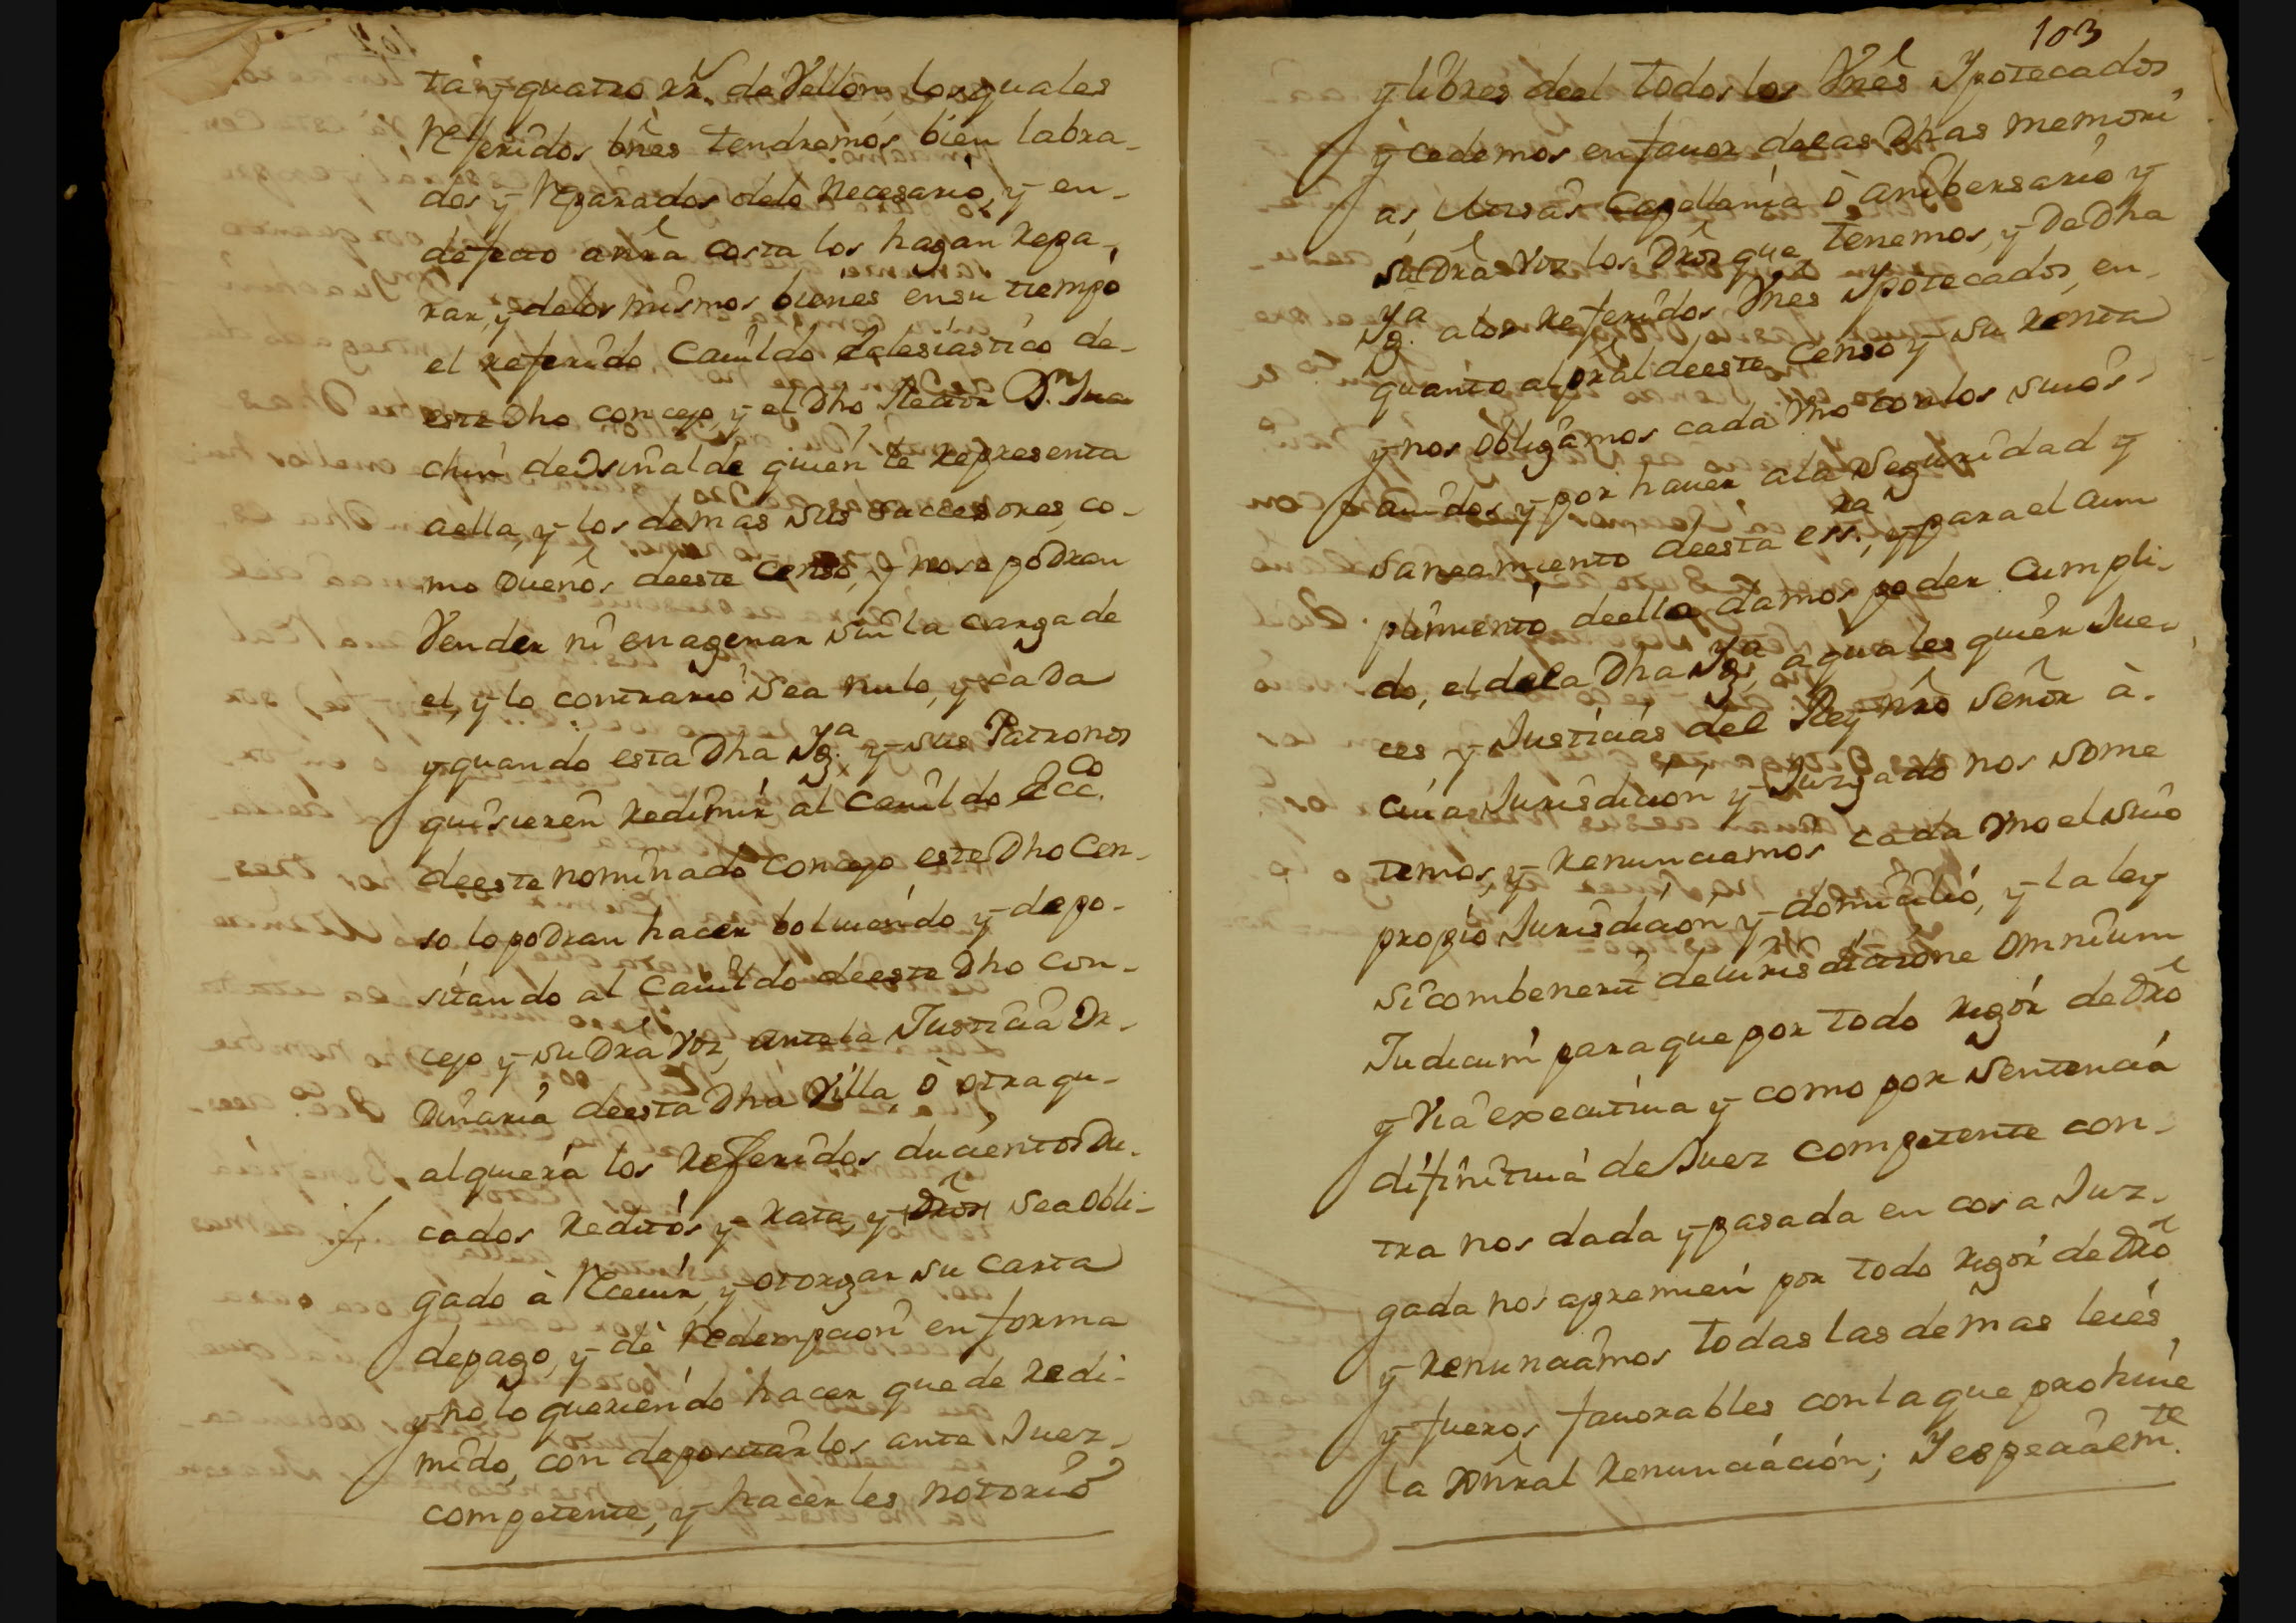 ta y quatro rs. de Vellon, los quales
Referidos bñes tendremos bien labra-
dos y Reparados delo Necesario, y en-
defecto anr̃a costa los hagan repa-
rar, y delos mismos bienes ensu tiempo
el referido Cauildo eclesiastico de-
este Dho concejo, y el Dho Rector Dn. Joa
chin deosinalde quien le representa
aella, y los demas sus successores, co-
mo Dueños deeste Censo, y no se podran
Vender ni enagenar sin la carga de
el, y lo contrario sea nulo, y cada
y quando esta Dha Yg.a y sus Patronos
quisieren Redimir al cauildo Ecc.co
deeste nominado concejo este Dho Cen-
so lo podran hacer boluiendo y depo-
sitando al Cauildo deeste Dho Con-
cejo y su Dr̃a Voz, ante la Justicia Or-
dinaria deesta Dha Villa, ò otra qu-
alquiera los Referidos ducientos Du-
cados reditos y rata, y sea obli-
gado à Reciuir, y otorgar su carta
depago, y dè Redempcion en forma
y no lo queriendo hacer quede redi-
mido, con depositarlos ante Juez
competente, y hacerles notorio
103
y libres deel todos los Vñes Ypotecados
y cedemos en fauor delas Dhas memori
as, Missas Capellania ò anibersario y
su Dr̃a Voz los Dr̃os que tenemos, y De Dha
Yg.a alos Referidos Vñes Ypotecados, en-
quanto al pr̃al deeste Censo y su renta
y nos obligamos cada Vno con los suios
auidos y por hauer ala Seguridad y
Saneamiento deesta ess.ra, y para el cum
plimiento deello damos poder Cumpli-
do, el dela Dha Yg.a, aquales quier Jue-
ces y Justicias del Rey nr̃o Señor à-
cuia Jurisdicion y Juzgado nos some
temos, y Renunciamos cada Vno el suio
propio Jurisdicion y domicilio, y la ley
Si combenerit de iurisdictione omnium
Judicum para que por todo rigor de Dr̃o
y Via executiua y como por Sentencia
difinitiua de Juez competente con-
tra nos dada y pasada en cosa Juz-
gada nos apremien por todo rigor de Dr̃o
y renunciamos todas las demas leies
y fueros fauorables con la que prohiue
la Gñral Renunciación; Y especialm.te